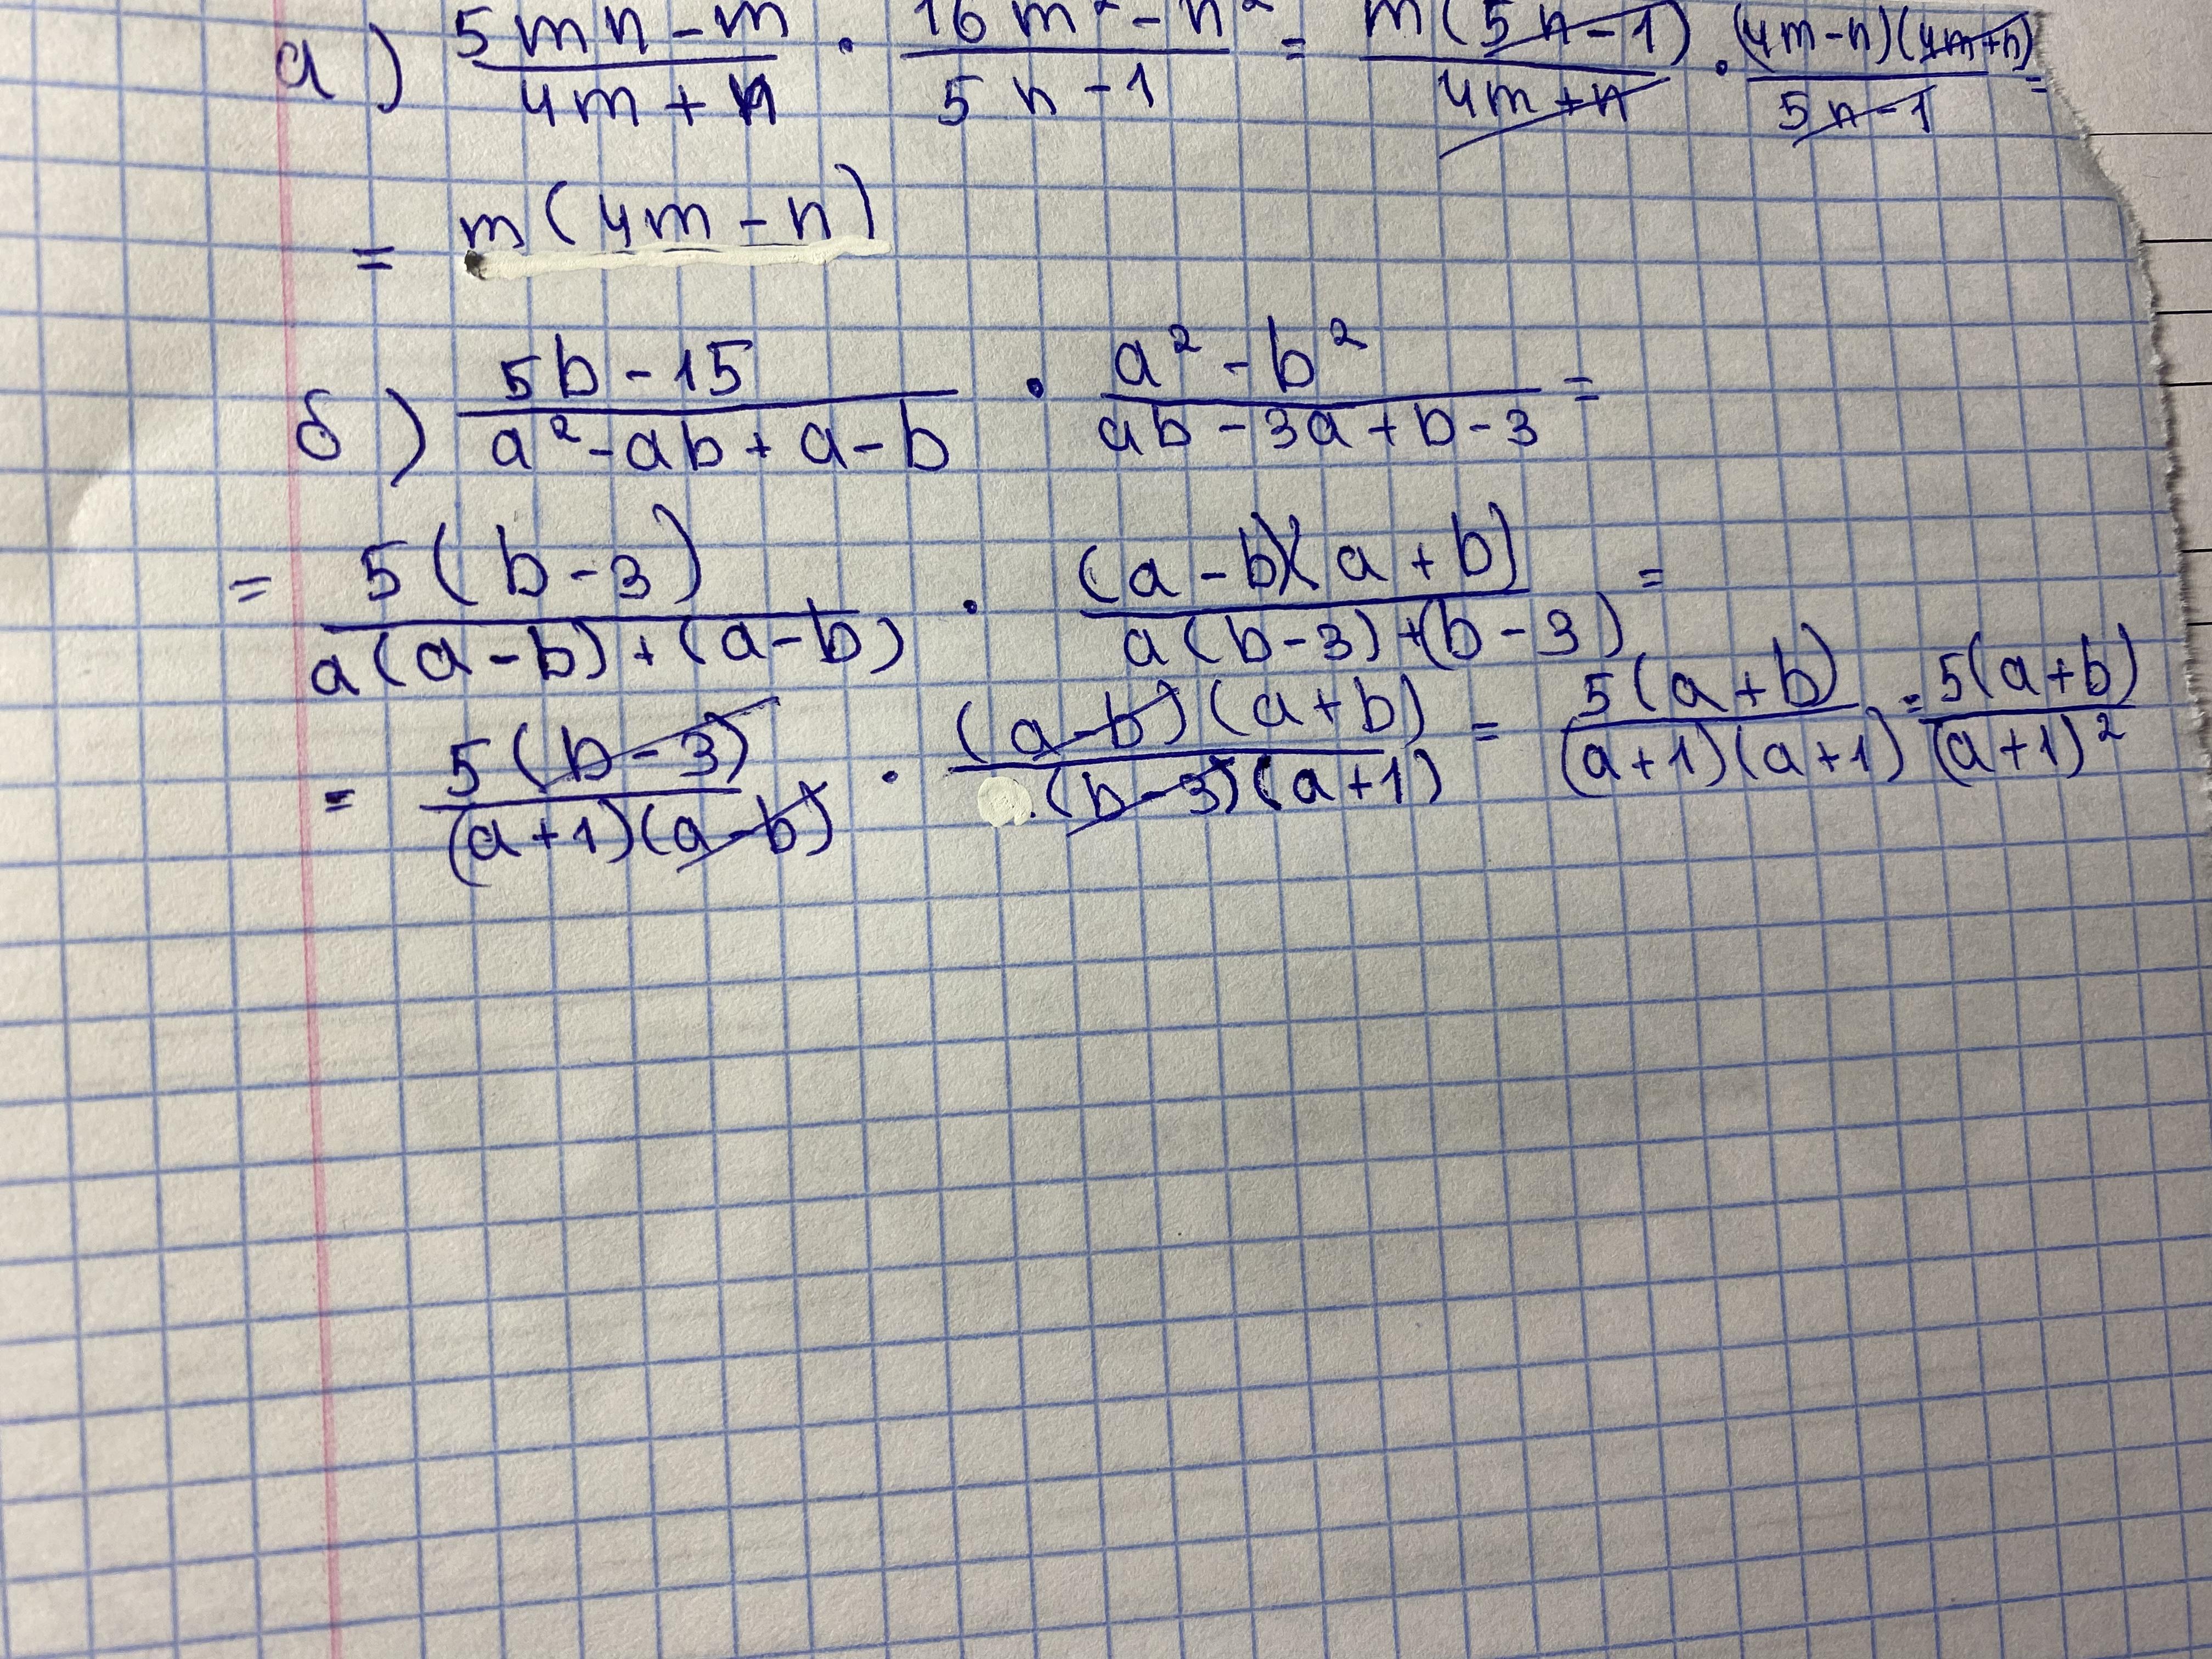 а) (5mn-m)/(4m+n) · (16m²-n²)/(5n-1) = (m(5n-1))/(4m+n) · ((4m-n)(4m+n))/(5n-1) =
= m(4m-n)
б) (5b-15)/(a²-ab+a-b) · (a²-b²)/(ab-3a+b-3) =
= (5(b-3))/(a(a-b)+(a-b)) · ((a-b)(a+b))/(a(b-3)+(b-3)) =
= (5(b-3))/((a+1)(a-b)) · ((a-b)(a+b))/((b-3)(a+1)) = (5(a+b))/((a+1)(a+1)) = (5(a+b))/((a+1)²)